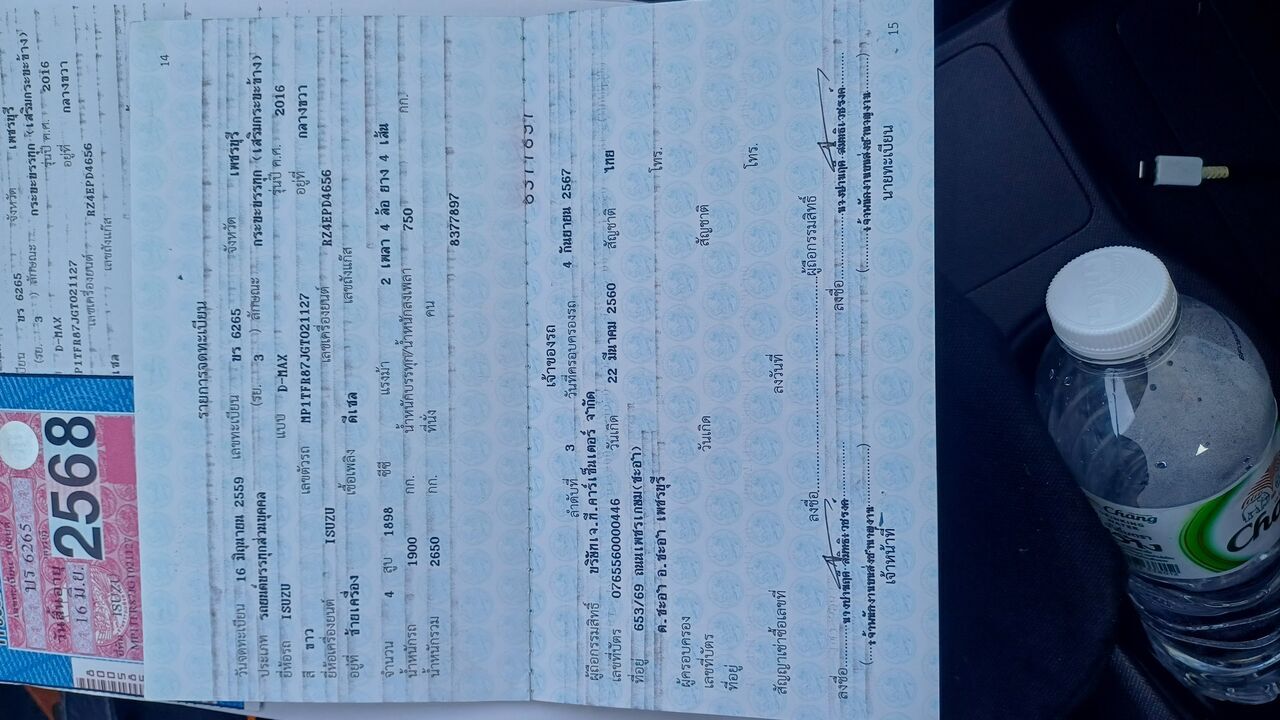 14
รายการจดทะเบียน
วันจดทะเบียน 16 มิถุนายน 2559 เลขทะเบียน บร 6265 จังหวัด เพชรบุรี
ประเภท รถยนต์บรรทุกส่วนบุคคล (รย. 3 ) ลักษณะ กระบะบรรทุก (เสริมกระบะข้าง)
ยี่ห้อรถ ISUZU แบบ D-MAX รุ่นปี ค.ศ. 2016
สี ขาว เลขตัวรถ MP1TFR87JGT021127 อยู่ที่ กลางขวา
ยี่ห้อเครื่องยนต์ ISUZU เลขเครื่องยนต์ RZ4EPD4656
อยู่ที่ ซ้ายเครื่อง เชื้อเพลิง ดีเซล เลขถังแก๊ส
จำนวน 4 สูบ 1898 ซีซี แรงม้า 2 เพลา 4 ล้อ ยาง 4 เส้น
น้ำหนักรถ 1900 กก. น้ำหนักบรรทุก/น้ำหนักลงเพลา 750 กก.
น้ำหนักรวม 2650 กก. ที่นั่ง คน
8377897
เจ้าของรถ
ลำดับที่ 3 วันที่ครอบครองรถ 4 กันยายน 2567
ผู้ถือกรรมสิทธิ์ บริษัทเจ.ที.คาร์เซ็นเตอร์ จำกัด
เลขที่บัตร 0765560000446 วันเกิด 22 มีนาคม 2560 สัญชาติ ไทย
ที่อยู่ 653/69 ถนนเพชรเกษม(ชะอำ)
ต.ชะอำ อ.ชะอำ เพชรบุรี โทร.
ผู้ครอบครอง
เลขที่บัตร วันเกิด สัญชาติ
ที่อยู่ โทร.
สัญญาเช่าซื้อเลขที่ ลงวันที่
ลงชื่อ ผู้ถือกรรมสิทธิ์
ลงชื่อ ลงชื่อ
เจ้าหน้าที่ นายทะเบียน
15
จังหวัด เพชรบุรี
บร 6265
(รย. 3 ) ลักษณะ กระบะบรรทุก (เสริมกระบะข้าง)
D-MAX รุ่นปี ค.ศ. 2016
MP1TFR87JGT021127 อยู่ที่ กลางขวา
เลขเครื่องยนต์ RZ4EPD4656
เลขถังแก๊ส
บร 6265
วันสิ้นอายุ
16 มิ.ย. 2568
ISUZU
Chang